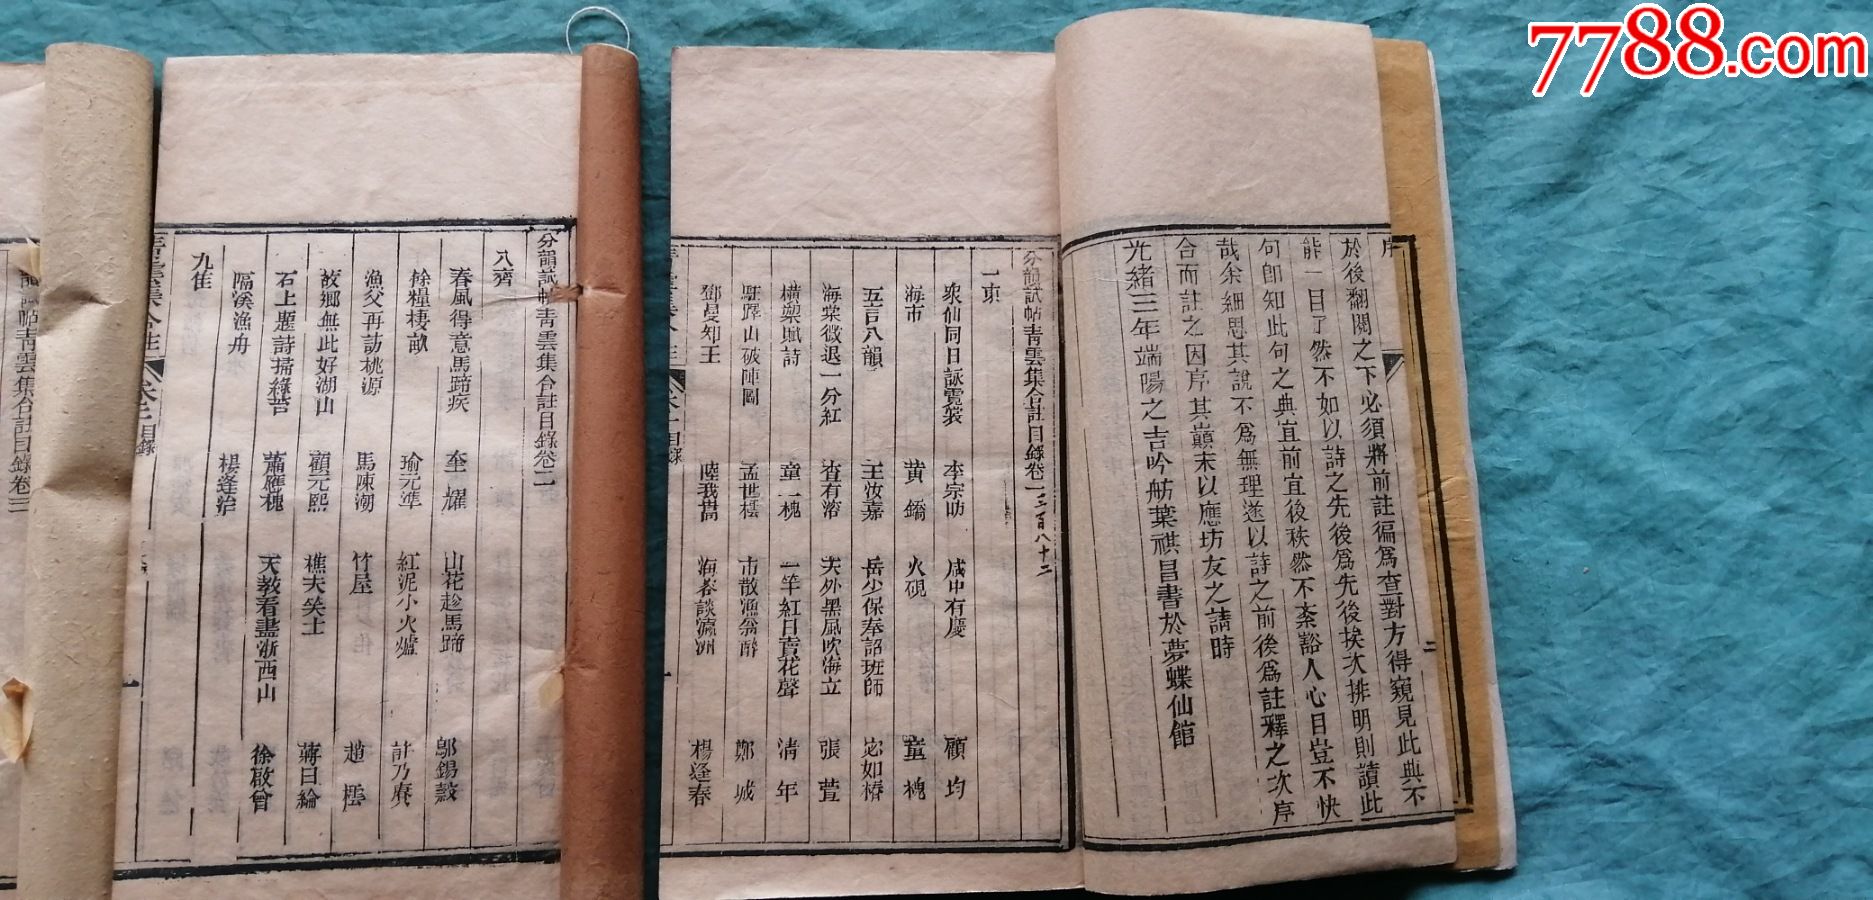 7788.com
序
於後翻閱之下必須將前註徧爲查對方得窺見此典不
能一目了然不如以詩之先後爲先後挨次排明則讀此
句卽知此句之典宜前宜後秩然不紊豁人心目豈不快
哉余細思其說不爲無理遂以詩之前後爲註釋之次序
合而註之因序其巔末以應坊友之請時
光緒三年端陽之吉吟舫葉祺昌書於夢蝶仙館
二
分韻試帖青雲集合註目錄卷一 二百八十二
一東
眾仙同日詠霓裳 李宗昉 咸中有慶 顧均
海市 黄鐈 火硯 童槐
五言八韻 王汝嘉 岳少保奉詔班師 宓如椿
海棠微退一分紅 查有溶 天外黑風吹海立 張萱
橫槊賦詩 童槐 一竿紅日賣花聲 清年
驅驛山破陣圖 孟世樰 市散漁翁醉 鄭城
鄧曼知王 陸我嵩 海客談瀛洲 楊逢春
分韻試帖青雲集合註目錄卷二
八齊
春風得意馬蹄疾 奎耀 山花趁馬蹄 鄔錫敼
餘糧棲畝 瑜元準 紅泥小火爐 許乃賡
漁父再訪桃源 馬陳潮 竹屋 趙樰
故鄉無此好湖山 顧元熙 樵夫笑士 蔣曰綸
石上題詩掃綠苔 蕭應槐 天教看盡浙西山 徐啟曾
隔溪漁舟 楊逢治
九佳
青雲集合註 卷二目錄 一
分韻試帖青雲集合註目錄卷三